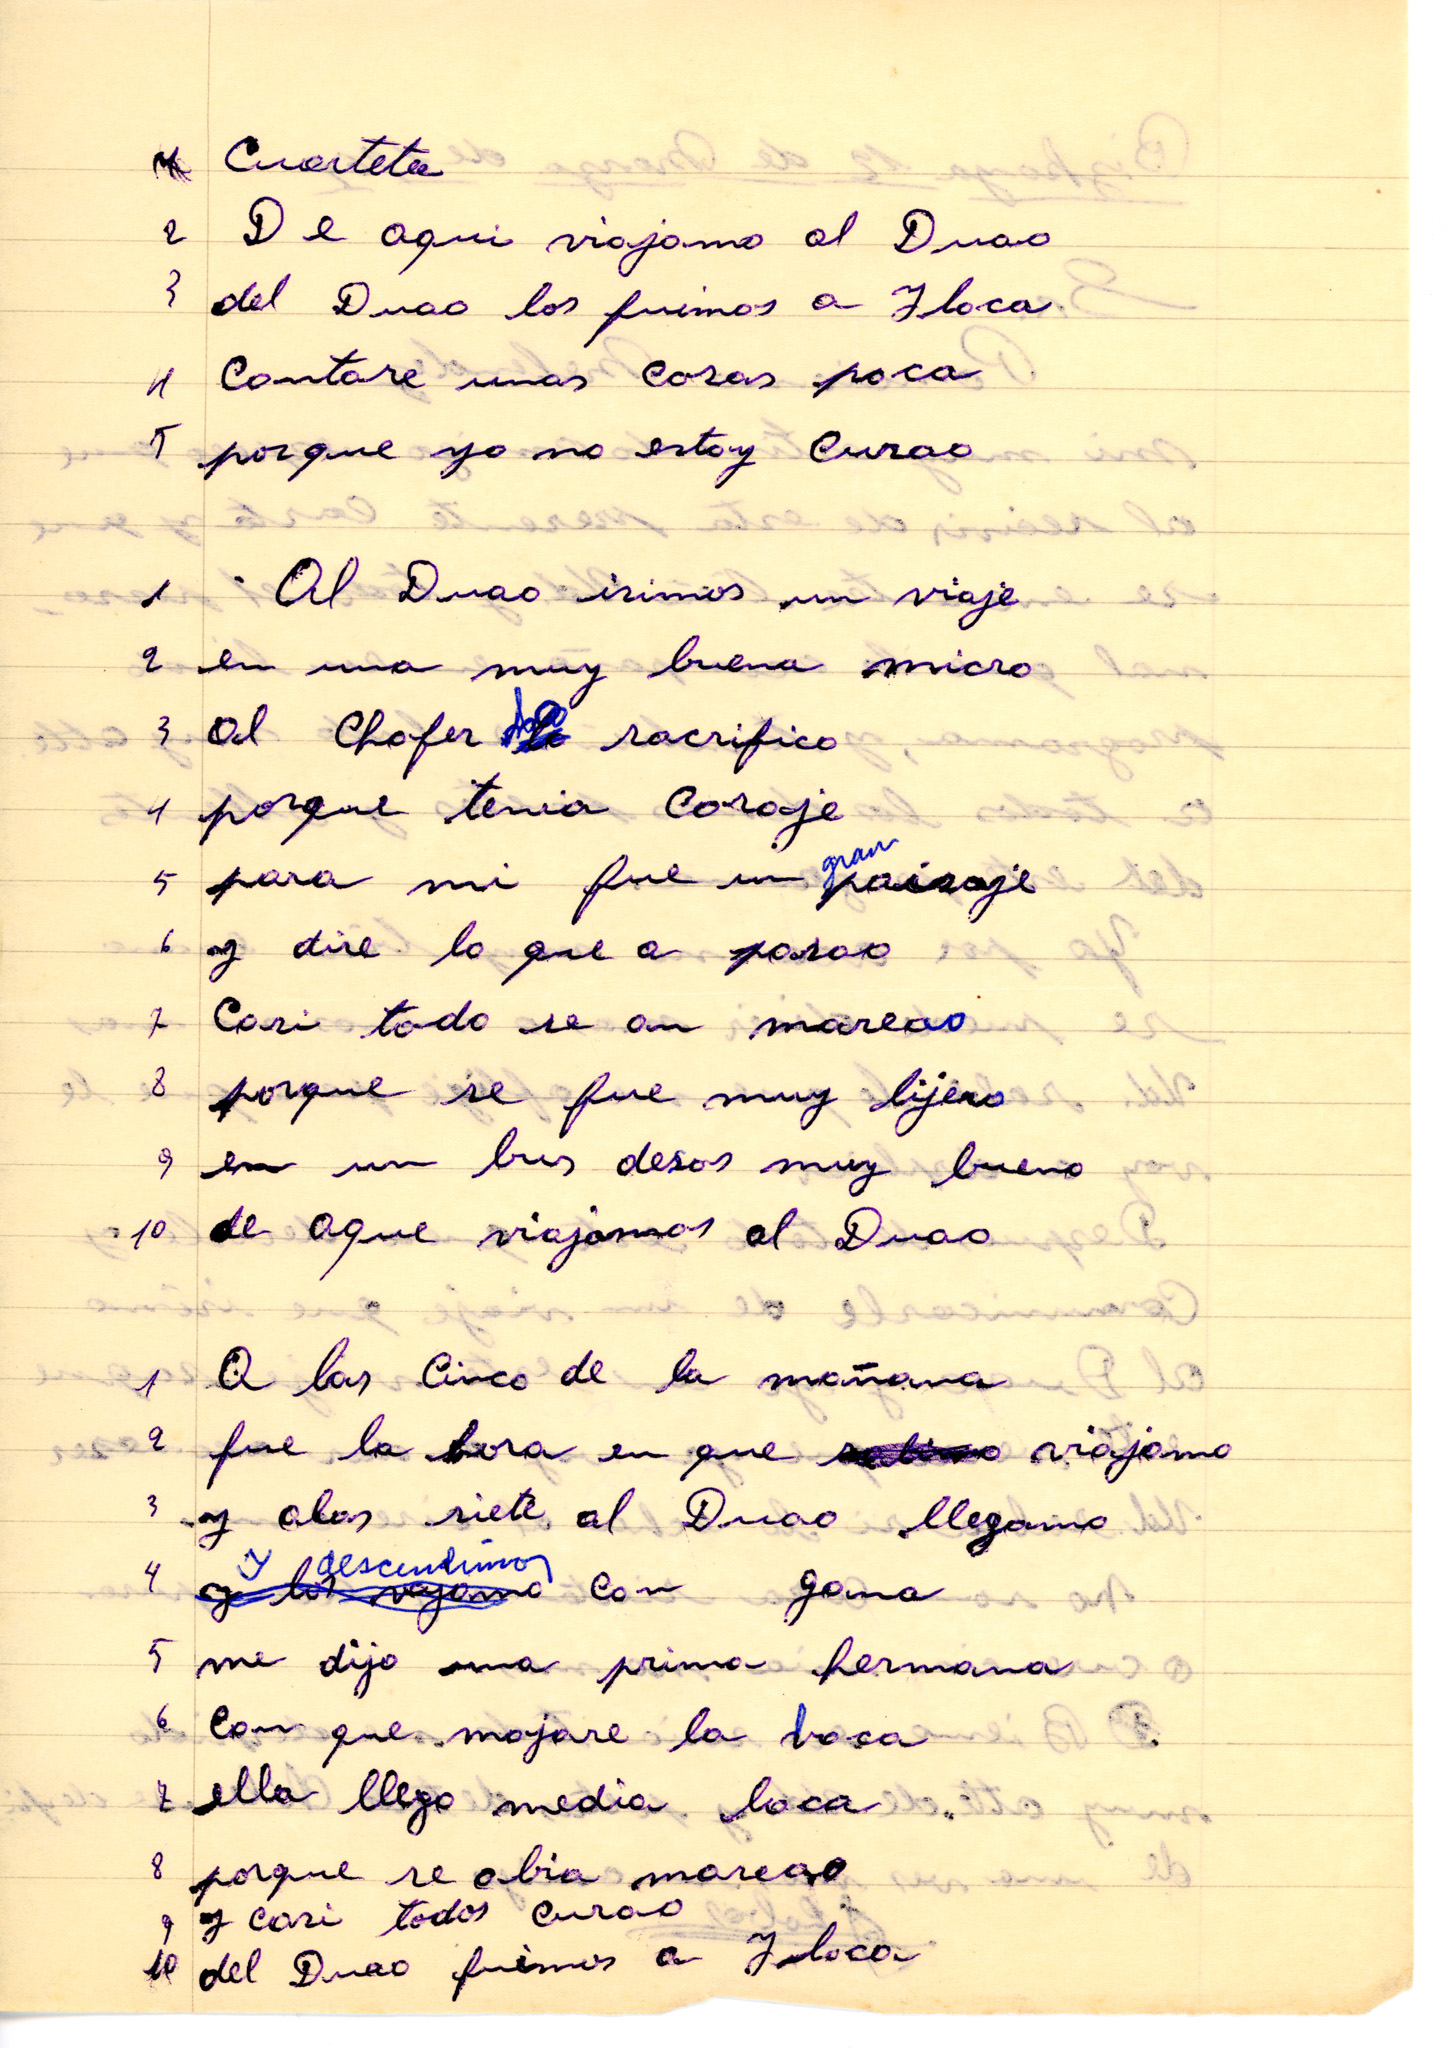 Cuarteta
2 De aqui viajamo al Duao
3 del Duao los fuimos a Iloca
4 Contare unas cosas poca
5 porque yo no estoy curao
1 Al Duao isimos un viaje
2 en una muy buena micro
3 Al Chofer sacrifico
4 porque tenia coraje
5 para mi fue un gran paisaje
6 y dire lo que a pasao
7 Casi todo se an mareao
8 porque se fue muy lijero
9 en un bus desos muy bueno
10 de aque viajamos al Duao
1 A las Cinco de la mañana
2 fue la hora en que viajamo
3 y alas siete al Duao llegamo
4 Y descendimos con gana
5 me dijo una prima hermana
6 Con que mojare la boca
7 ella llego media loca
8 porque se abia mareao
9 y casi todos curao
10 del Duao fuimos a Iloca